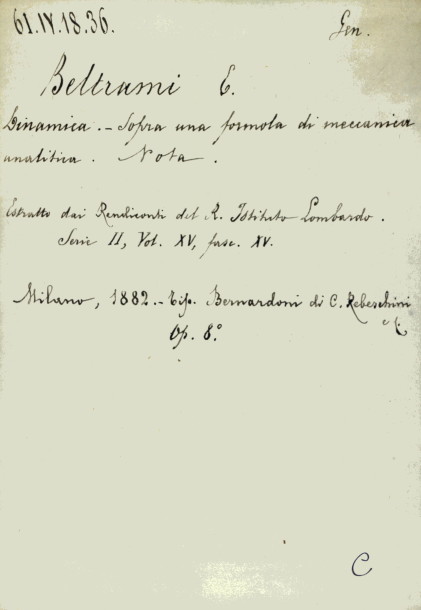 61.IV.18.36. Gen.
Beltrami E.
Dinamica. - Sopra una formola di meccanica
analitica. Nota.
Estratto dai Rendiconti del R. Istituto Lombardo.
Serie II, Vol. XV, fasc. XV.
Milano, 1882. - Tip. Bernardoni di C. Rebeschini
e C.
Op. 8.°
C